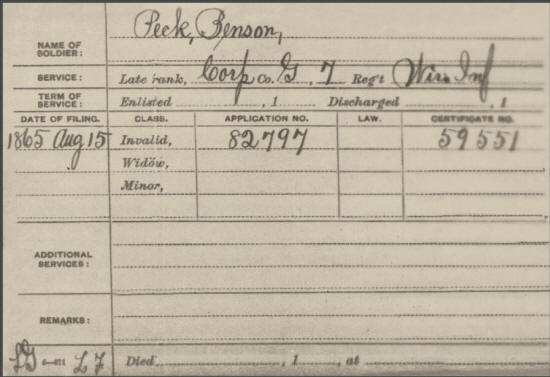 Peck, Benson,
NAME OF SOLDIER:
SERVICE: Late rank, Corp Co. G, 7 Reg't Wis Inf
TERM OF SERVICE: Enlisted , 1 Discharged , 1
DATE OF FILING. CLASS. APPLICATION NO. LAW. CERTIFICATE NO.
1865 Aug 15 Invalid, 82797 59551
Widow,
Minor,
ADDITIONAL SERVICES:
REMARKS:
Died , 1 , at